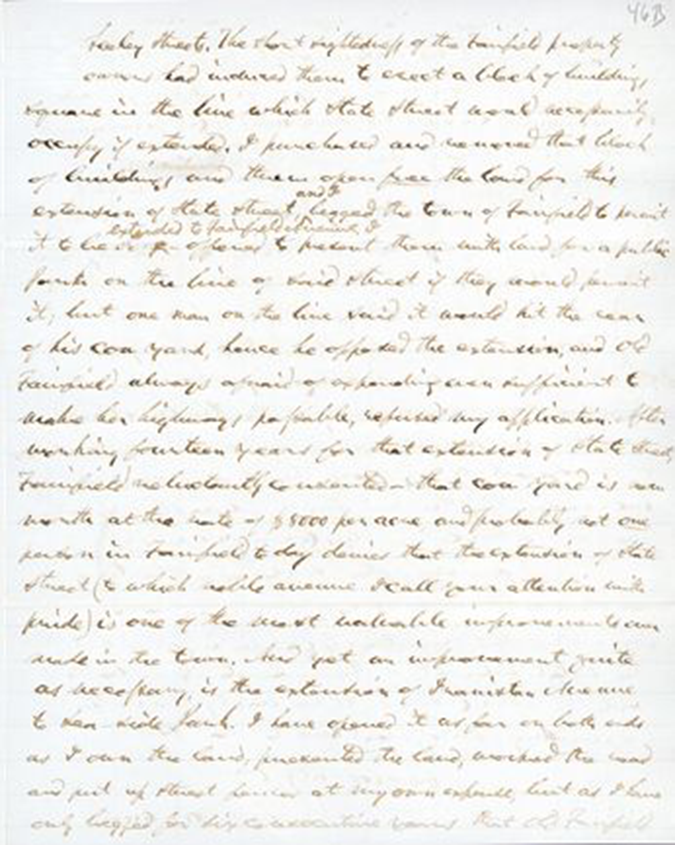 46B
Seeley Street. The short sightedness of the Fairfield property
owners had induced them to erect a block of buildings
square in the line which State Street would necessarily
occupy if extended. I purchased and removed that block
of buildings and threw open free the land for this
and I
extension of State Street, begged the town of Fairfield to permit
extended to Fairfield Avenue I
it to be offered to present them with land for a public
park on the line of said street if they would permit
it, but one man on the line said it would hit the rear
of his cow yard, hence he opposed the extension, and old
Fairfield always afraid of expending even sufficient to
make her highways passable, refused my application. After
working fourteen years for that extension of State Street,
Fairfield reluctantly consented – that cow yard is now
worth at the rate of $8000 per acre and probably not one
person in Fairfield to day denies that the extension of State
Street (to which noble avenue I call your attention with
pride) is one of the most valuable improvements ever
made in the town. And yet an improvement quite
as necessary, is the extension of Iranistan Avenue
to Sea-side Park. I have opened it as far on both ends
as I own the land, presented the land, worked the road
and put up street at my own expense, but as I have
only begged for six consecutive years that old Fairfield